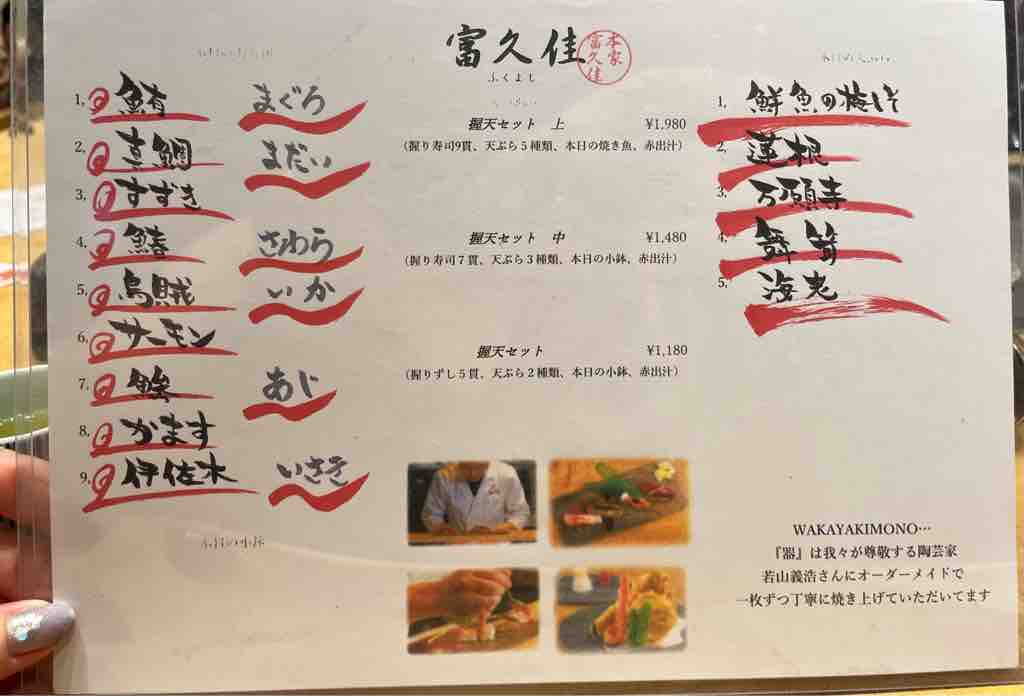 富久佳
本家
富久佳
ふくよし
1, 鮪 まぐろ
2, 真鯛 まだい
3, すずき
4, 鰆 さわら
5, 烏賊 いか
6, サーモン
7, 鯵 あじ
8, かます
9, 伊佐木 いさき
握天セット 上 ¥1,980
（握り寿司9貫、天ぷら５種類、本日の焼き魚、赤出汁）
握天セット 中 ¥1,480
（握り寿司７貫、天ぷら３種類、本日の小鉢、赤出汁）
握天セット ¥1,180
（握りずし５貫、天ぷら２種類、本日の小鉢、赤出汁）
1, 鮮魚の梅しそ
2, 蓮根
3, 万願寺
4, 舞茸
5, 海老
WAKAYAKIMONO…
『器』は我々が尊敬する陶芸家
若山義浩さんにオーダーメイドで
一枚ずつ丁寧に焼き上げていただいてます